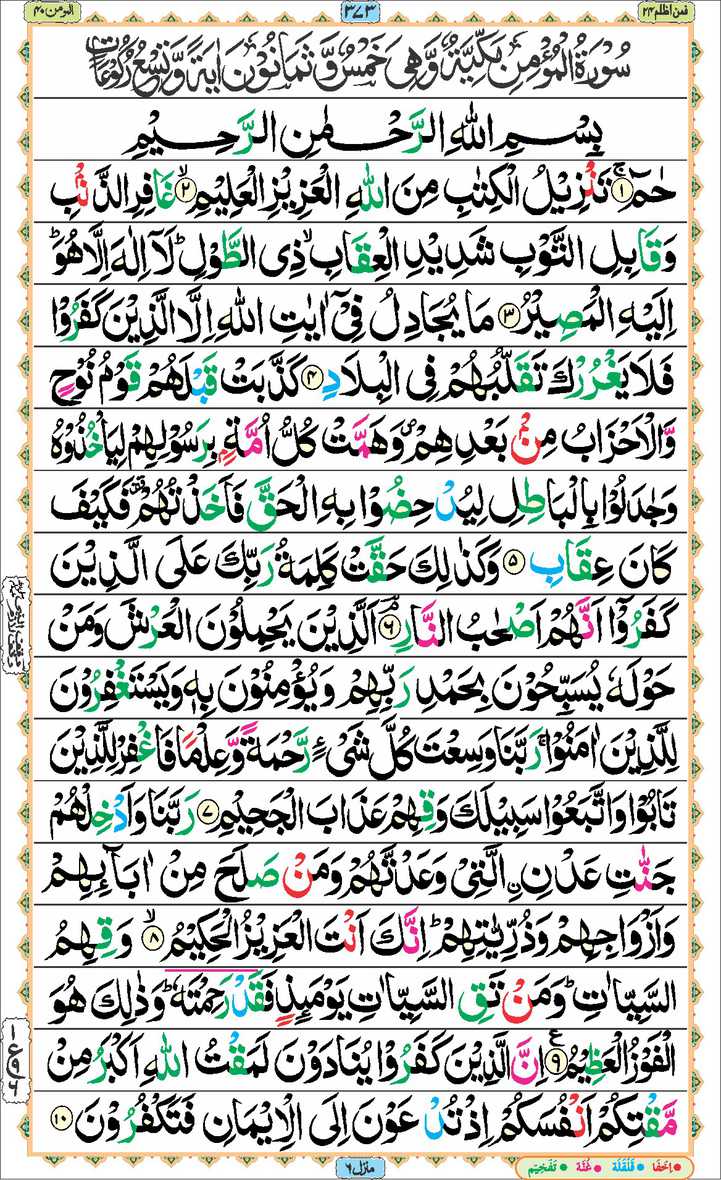 فمن اظلم ۲۴
۳۷۳
المؤمن ۴۰
سُوْرَةُ الْمُؤْمِنِ مَكِّيَّةٌ وَّهِىَ خَمْسٌ وَّثَمَانُوْنَ اٰيَةً وَّتِسْعُ رُكُوْعَاتٍ
بِسْمِ اللّٰهِ الرَّحْمٰنِ الرَّحِيْمِ
حٰمٓ ۚ‏﴿۱﴾ تَنْزِيْلُ الْكِتٰبِ مِنَ اللّٰهِ الْعَزِيْزِ الْعَلِيْمِۙ‏﴿۲﴾ غَافِرِ الذَّنْۢبِ
وَقَابِلِ التَّوْبِ شَدِيْدِ الْعِقَابِۙ ذِى الطَّوْلِؕ لَاۤ اِلٰهَ اِلَّا هُوَؕ
اِلَيْهِ الْمَصِيْرُ‏﴿۳﴾ مَا يُجَادِلُ فِىْۤ اٰيٰتِ اللّٰهِ اِلَّا الَّذِيْنَ كَفَرُوْا
فَلَا يَغْرُرْكَ تَقَلُّبُهُمْ فِى الْبِلَادِ‏﴿۴﴾ كَذَّبَتْ قَبْلَهُمْ قَوْمُ نُوْحٍ
وَّالْاَحْزَابُ مِنْۢ بَعْدِهِمْ وَهَمَّتْ كُلُّ اُمَّةٍۢ بِرَسُوْلِهِمْ لِيَاْخُذُوْهُ
وَجٰدَلُوْا بِالْبَاطِلِ لِيُدْحِضُوْا بِهِ الْحَقَّ فَاَخَذْتُهُمْ فَكَيْفَ
كَانَ عِقَابِ‏﴿۵﴾ وَكَذٰلِكَ حَقَّتْ كَلِمَةُ رَبِّكَ عَلَى الَّذِيْنَ
كَفَرُوْۤا اَنَّهُمْ اَصْحٰبُ النَّارِ‏ۘ﴿۶﴾ اَلَّذِيْنَ يَحْمِلُوْنَ الْعَرْشَ وَمَنْ
حَوْلَهٗ يُسَبِّحُوْنَ بِحَمْدِ رَبِّهِمْ وَيُؤْمِنُوْنَ بِهٖ وَيَسْتَغْفِرُوْنَ
لِلَّذِيْنَ اٰمَنُوْاۚ رَبَّنَا وَسِعْتَ كُلَّ شَىْءٍ رَّحْمَةً وَّعِلْمًا فَاغْفِرْ لِلَّذِيْنَ
تَابُوْا وَاتَّبَعُوْا سَبِيْلَكَ وَقِهِمْ عَذَابَ الْجَحِيْمِ‏﴿۷﴾ رَبَّنَا وَاَدْخِلْهُمْ
جَنّٰتِ عَدْنِ اۨلَّتِىْ وَعَدْتَّهُمْ وَمَنْ صَلَحَ مِنْ اٰبَآئِهِمْ
وَاَزْوَاجِهِمْ وَذُرِّيّٰتِهِمْؕ اِنَّكَ اَنْتَ الْعَزِيْزُ الْحَكِيْمُۙ‏﴿۸﴾ وَقِهِمُ
السَّيِّاٰتِؕ وَمَنْ تَقِ السَّيِّاٰتِ يَوْمَئِذٍ فَقَدْ رَحِمْتَهٗؕ وَذٰلِكَ هُوَ
الْفَوْزُ الْعَظِيْمُ‏﴿۹﴾ اِنَّ الَّذِيْنَ كَفَرُوْا يُنَادَوْنَ لَمَقْتُ اللّٰهِ اَكْبَرُ مِنْ
مَّقْتِكُمْ اَنْفُسَكُمْ اِذْ تُدْعَوْنَ اِلَى الْاِيْمَانِ فَتَكْفُرُوْنَ‏﴿۱۰﴾
منزل ۶
اِخفَا قَلْقَلَه غُنَّه تَفْخِيْم